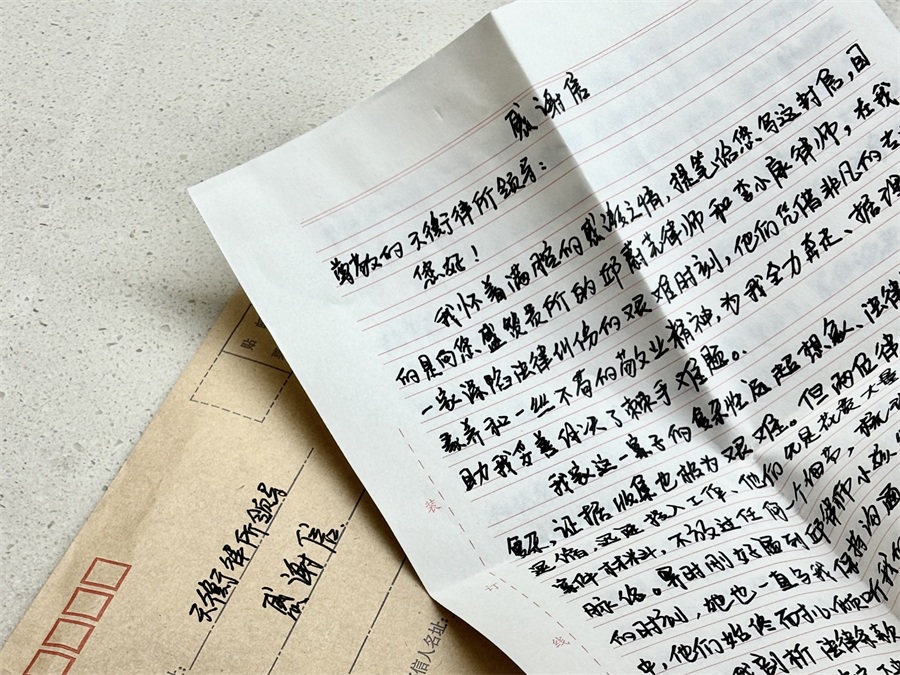 感谢信
尊敬的天衡律所领导：
您好！
我怀着满腔的感激之情，提笔给您写这封信，目
的是向您盛赞贵所的邱 律师和李小康律师，在我
家深陷法律纠纷的艰难时刻，他们凭借非凡的专
素养和一丝不苟的敬业精神，为我全力奔走、据理
助我妥善解决了棘手难题。
我家这一案子的复杂性远超想象、法律
证据收集也极为艰难。但两位律
投入工作、他们先是花费大量
案件材料，不放过任何一个细节，梳
脉络。 时刚好遇到邱律师小孩
的时刻，她也一直与我保持沟通
中，他们始终耐心倾听我们
我剖析法律条款
贴
装
订
线
天衡律所领导
感谢信
信人名址：